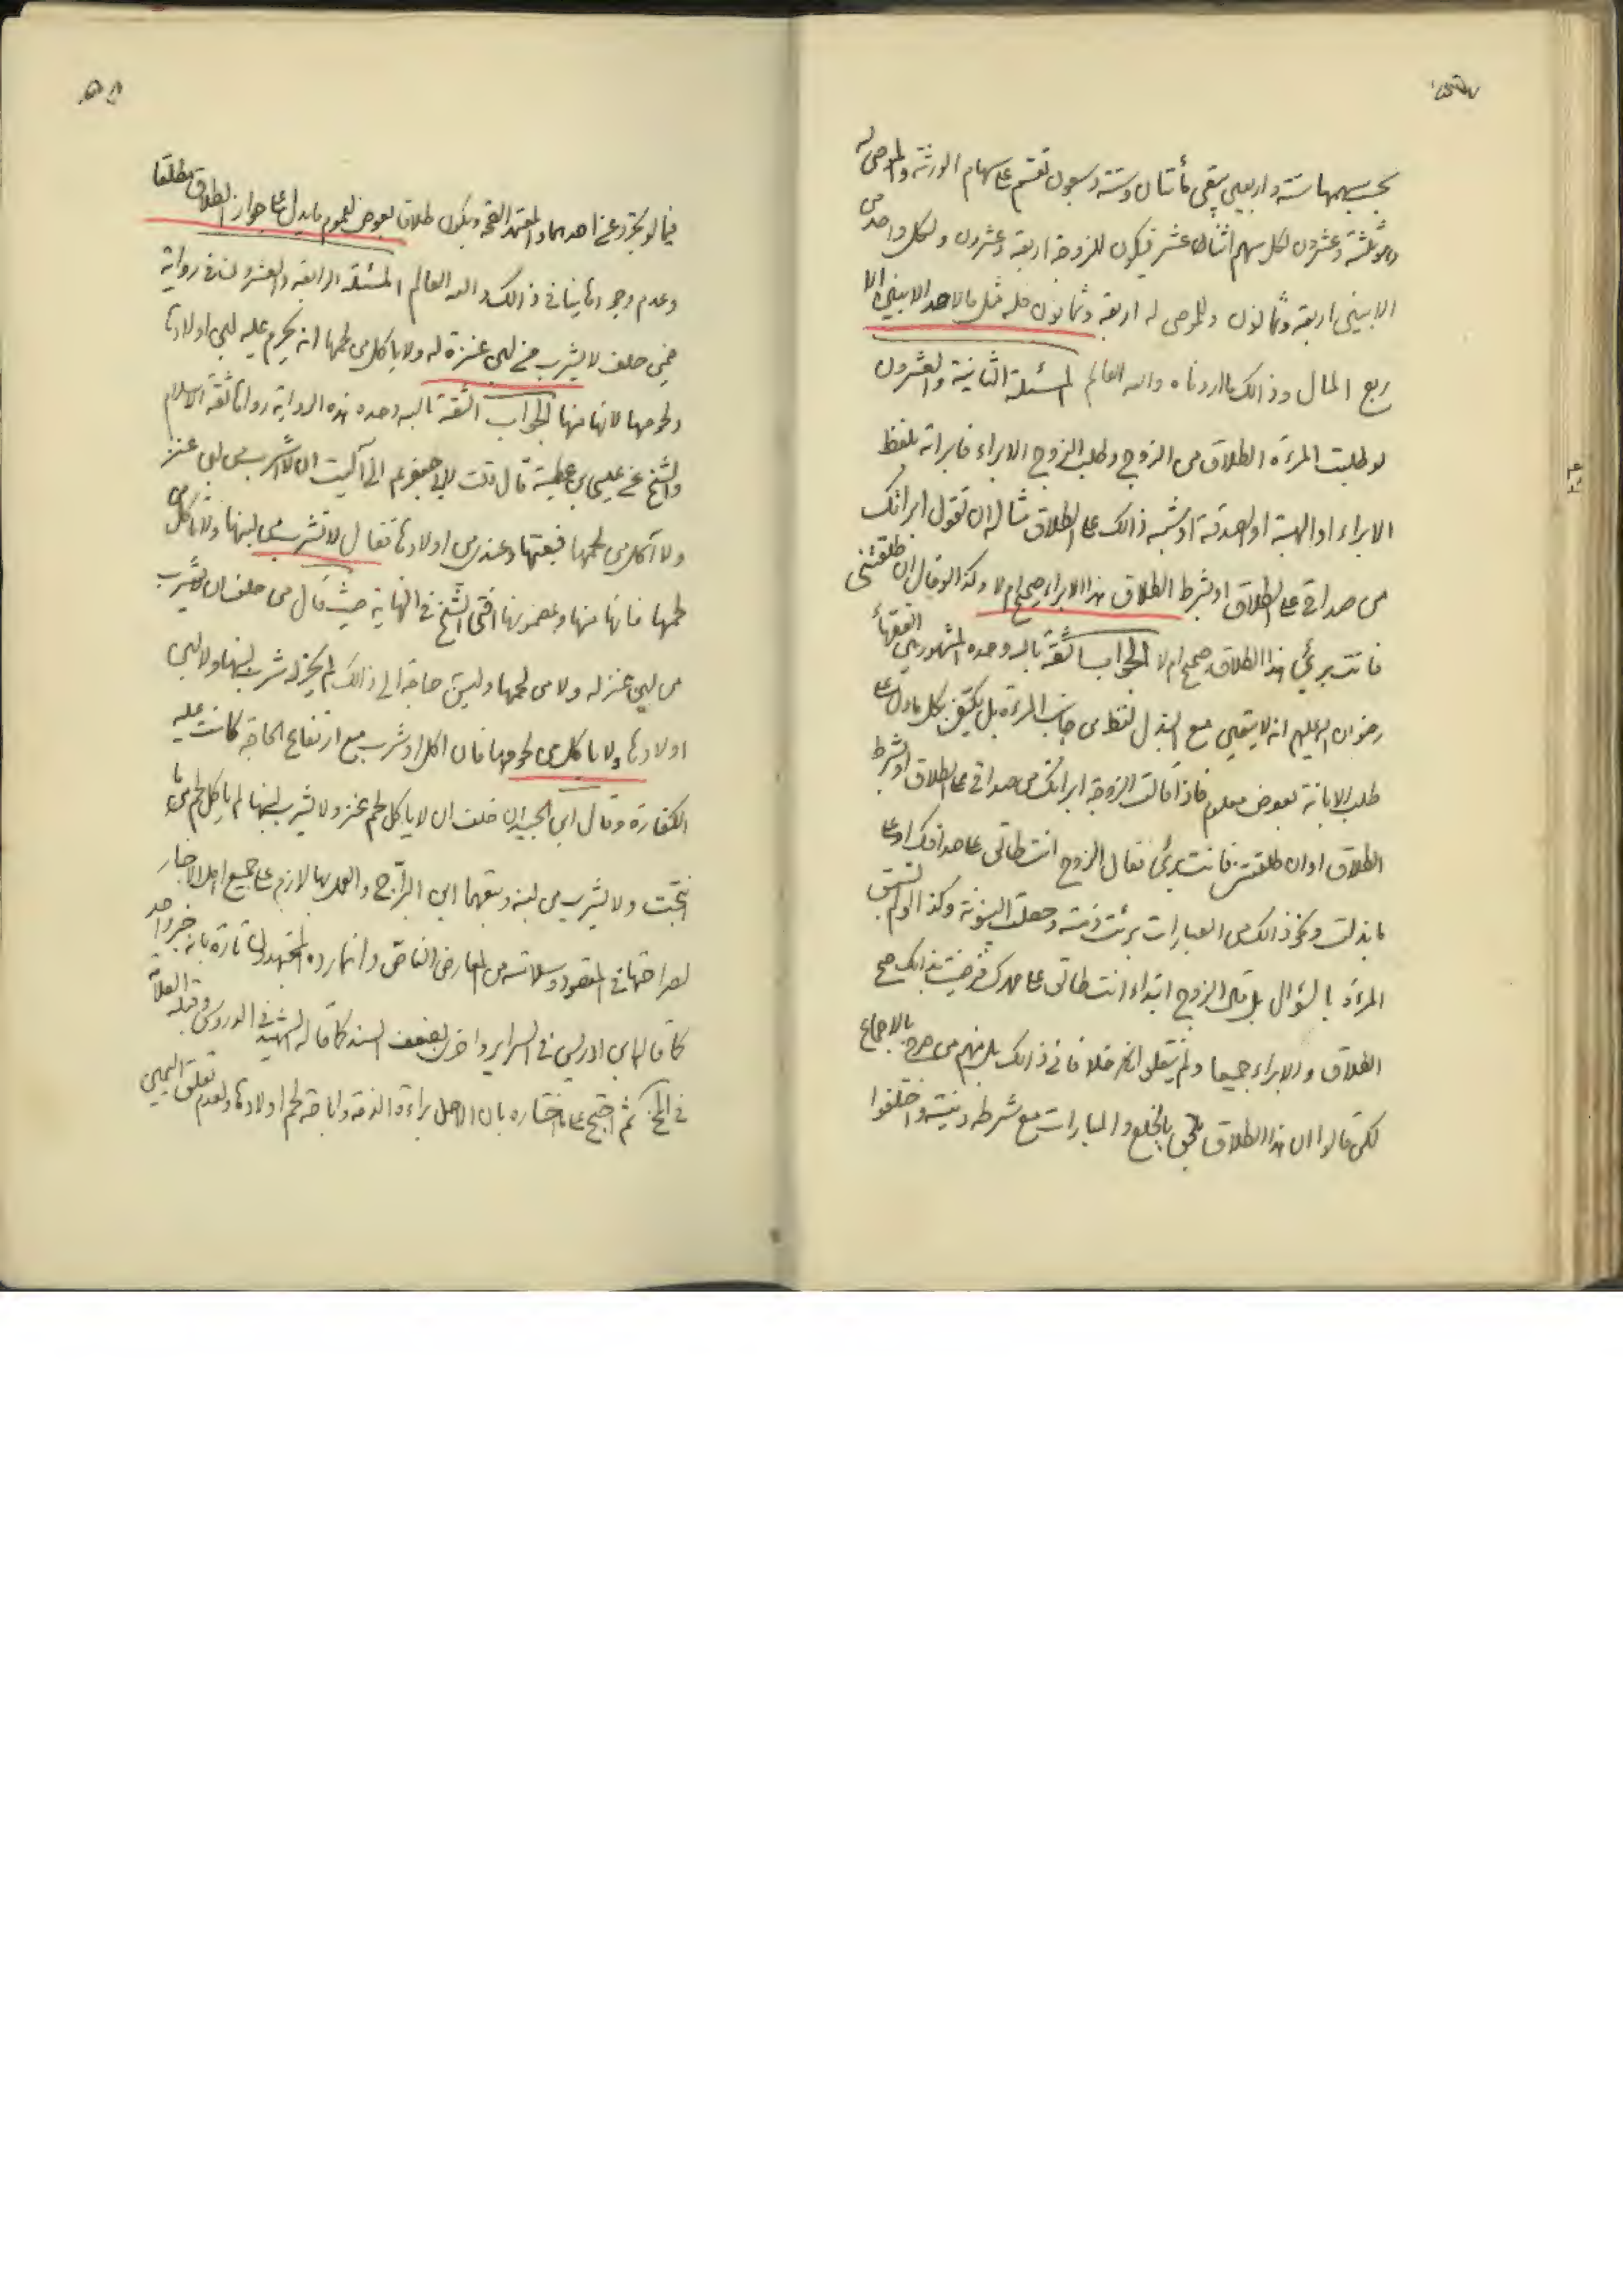 بحسبهما ستة واربعين يبقى مأتان وستة وسبعون تقسم على سهام الورثة والموصى له
وهو ثلثة وعشرون لكل سهم اثنا عشر فيكون للزوجة اربعة وعشرون ولكل واحد من
الابنين اربعة وثمانون وللموصى له اربعة وثمانون فله مثل ما لاحد الابنين الا
ربع المال وذالك ما اردناه والله العالم المسئلة الثانية والعشرون
لو طلبت المرءة الطلاق من الزوج وطلب الزوج الابراء فابراته بلفظ
الابراء او الهبة او الصدقة او شبه ذالك على الطلاق مثاله ان تقول ابراتك
من صداقى على الطلاق او بشرط الطلاق هذا الابراء صحيح ام لا وكذا لو قال ان طلقتنى
فانت برئ هذا الطلاق صحيح ام لا الجواب الثقة بالله وحده المشهور بين الفقهاء
رضوان الله عليهم انه لا يتعين مع البذل لفظ من جانب المرءة بل يكتفى بكل ما دل على
طلب الابانة بعوض معلوم فاذا قالت الزوجة ابراتك من صداقى على الطلاق او بشرط
الطلاق او ان طلقتنى فانت برئ فقال الزوج انت طالق على صداقك او على
ما بذلت ونحو ذالك من العبارات برئت ذمته وحصلت البينونة وكذا لو لم تسبق
المرءة بالسؤال بل قال الزوج ابتداء انت طالق على مهرك فرضيت بذالك صح
الطلاق والابراء جميعا ولم ينقلوا انكر خلافا فى ذالك بل منهم من صرح بالاجماع
لكن قالوا ان هذا الطلاق يلحق بالخلع والمبارات مع شرطه ونيته واختلفوا
فيما لو تجرد عن احدهما والمعتمد الصحة ويكون طلاقا بعوض لعموم ما يدل على جواز الطلاق مطلقا
وعدم وجود ما ينافى ذالك والله العالم المسئلة الرابعة والعشرون فى رواية
فيمن حلف لا يشرب من لبن عنزة له ولا ياكل من لحمها انه يحرم عليه لبن اولادها
ولحومها لانها منها الجواب الثقة بالله وحده هذه الرواية رواها ثقة الاسلام
والشيخ عن عيسى بن عطية قال قلت لابى جعفر عم انى آليت ان لا اشرب من لبن عنزى
ولا آكل من لحمها فبعتها وعندى من اولادها فقال لا تشرب من لبنها ولا تاكل من
لحمها فانها منها وبمضمونها افتى الشيخ فى النهاية حيث قال من حلف ان لا يشرب
من لبن عنز له ولا من لحمها وليس حاجة الى ذالك لم يجز له شرب لبنها ولا لبن
اولادها ولا ياكل من لحومها فان اكل او شرب مع ارتفاع الحاجة كانت عليه
الكفارة وقال ابن الجنيد ان حلف ان لا ياكل لحم عنز ولا يشرب لبنها لم ياكل لحم ما
انتجت ولا يشرب من لبنه وتبعهما ابن البراج والعمل بها لازم على جميع اهل الاخبار
لصراحتها فى المقصود وسلامته من المعارض الخاص وانما رده المجتهدون تارة بانه خبر واحد
كما قاله ابن ادريس فى السراير واخرى بضعف السند كما قاله الشهيد فى الدروس وقبله العلامة
فى المخ ثم احتج على ما اختاره بان الاصل براءة الذمة واباحة لحم اولادها ولعدم تعلق اليمين